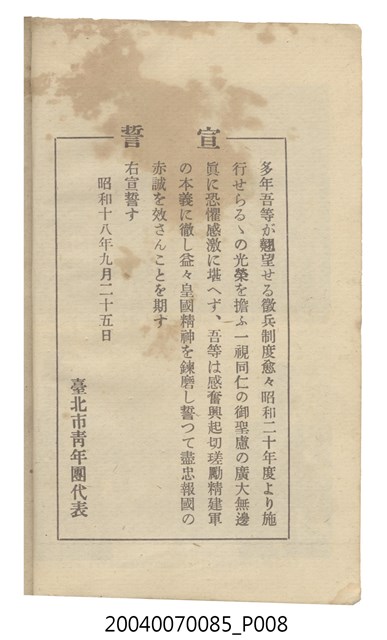 宣誓
多年吾等が翹望せる徵兵制度愈々昭和二十年度より施
行せらるゝの光榮を擔ふ一視同仁の御聖慮の廣大無邊
眞に恐懼感激に堪へず、吾等は感奮興起切瑳勵精建軍
の本義に徹し益々皇國精神を鍊磨し誓つて盡忠報國の
赤誠を效さんことを期す
右宣誓す
昭和十八年九月二十五日
臺北市靑年團代表
20040070085_P008